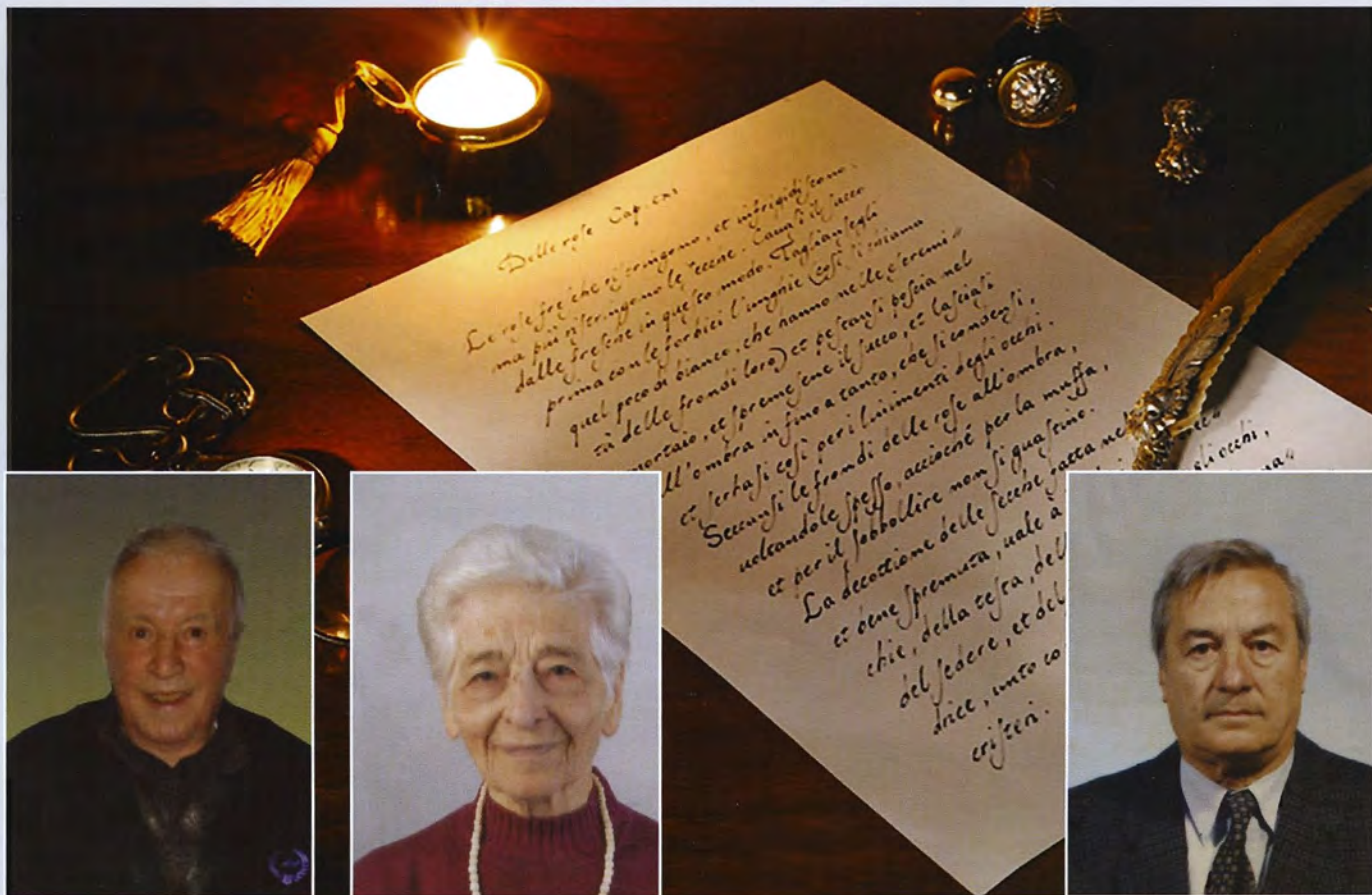 Delle rose Cap.
Le rose fresche ristringono, et infrigidiscono:
ma più ristringono le secche. Cauasi il succo
dalle fresche in questo modo. Tagliansegli
prima con le forbici l'unghie (così si chiama
quel poco di bianco, che hanno nelle estremi=
tà delle frondi loro) et pestansi poscia nel
mortaio, et spremesene il succo, et lasciasi
all'ombra infino a tanto, che si condensi,
et serbasi così per i linimenti degli occhi.
Seccansi le frondi delle rose all'ombra,
uoltandole spesso, acciochè per la muffa,
et per il sobbollire non si guastino.
La decottione delle secche fatta nel
et bene spremuta, uale à gli occhi,
chie, della testa, del
del sedere, et del
drice, unto co
cristeri.